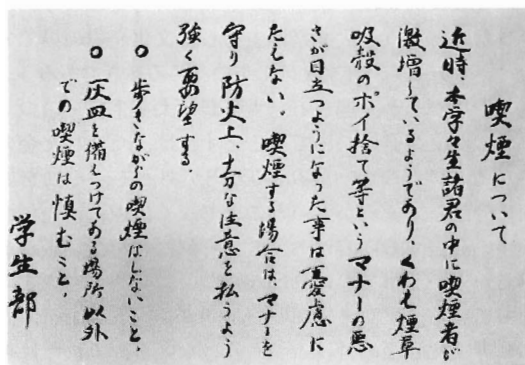 喫煙について
近時、本学々生諸君の中に喫煙者が
激増しているようであり くわえ煙草
吸殻のポイ捨て等というマナーの悪
さが目立つようになった事は憂慮に
たえない。喫煙する場合は、マナーを
守り防火上、十分な注意を払うよう
強く要望する。
○ 歩きながらの喫煙はしないこと、
○ 灰皿を備えつけてある場所以外
での喫煙は慎むこと、
学生部